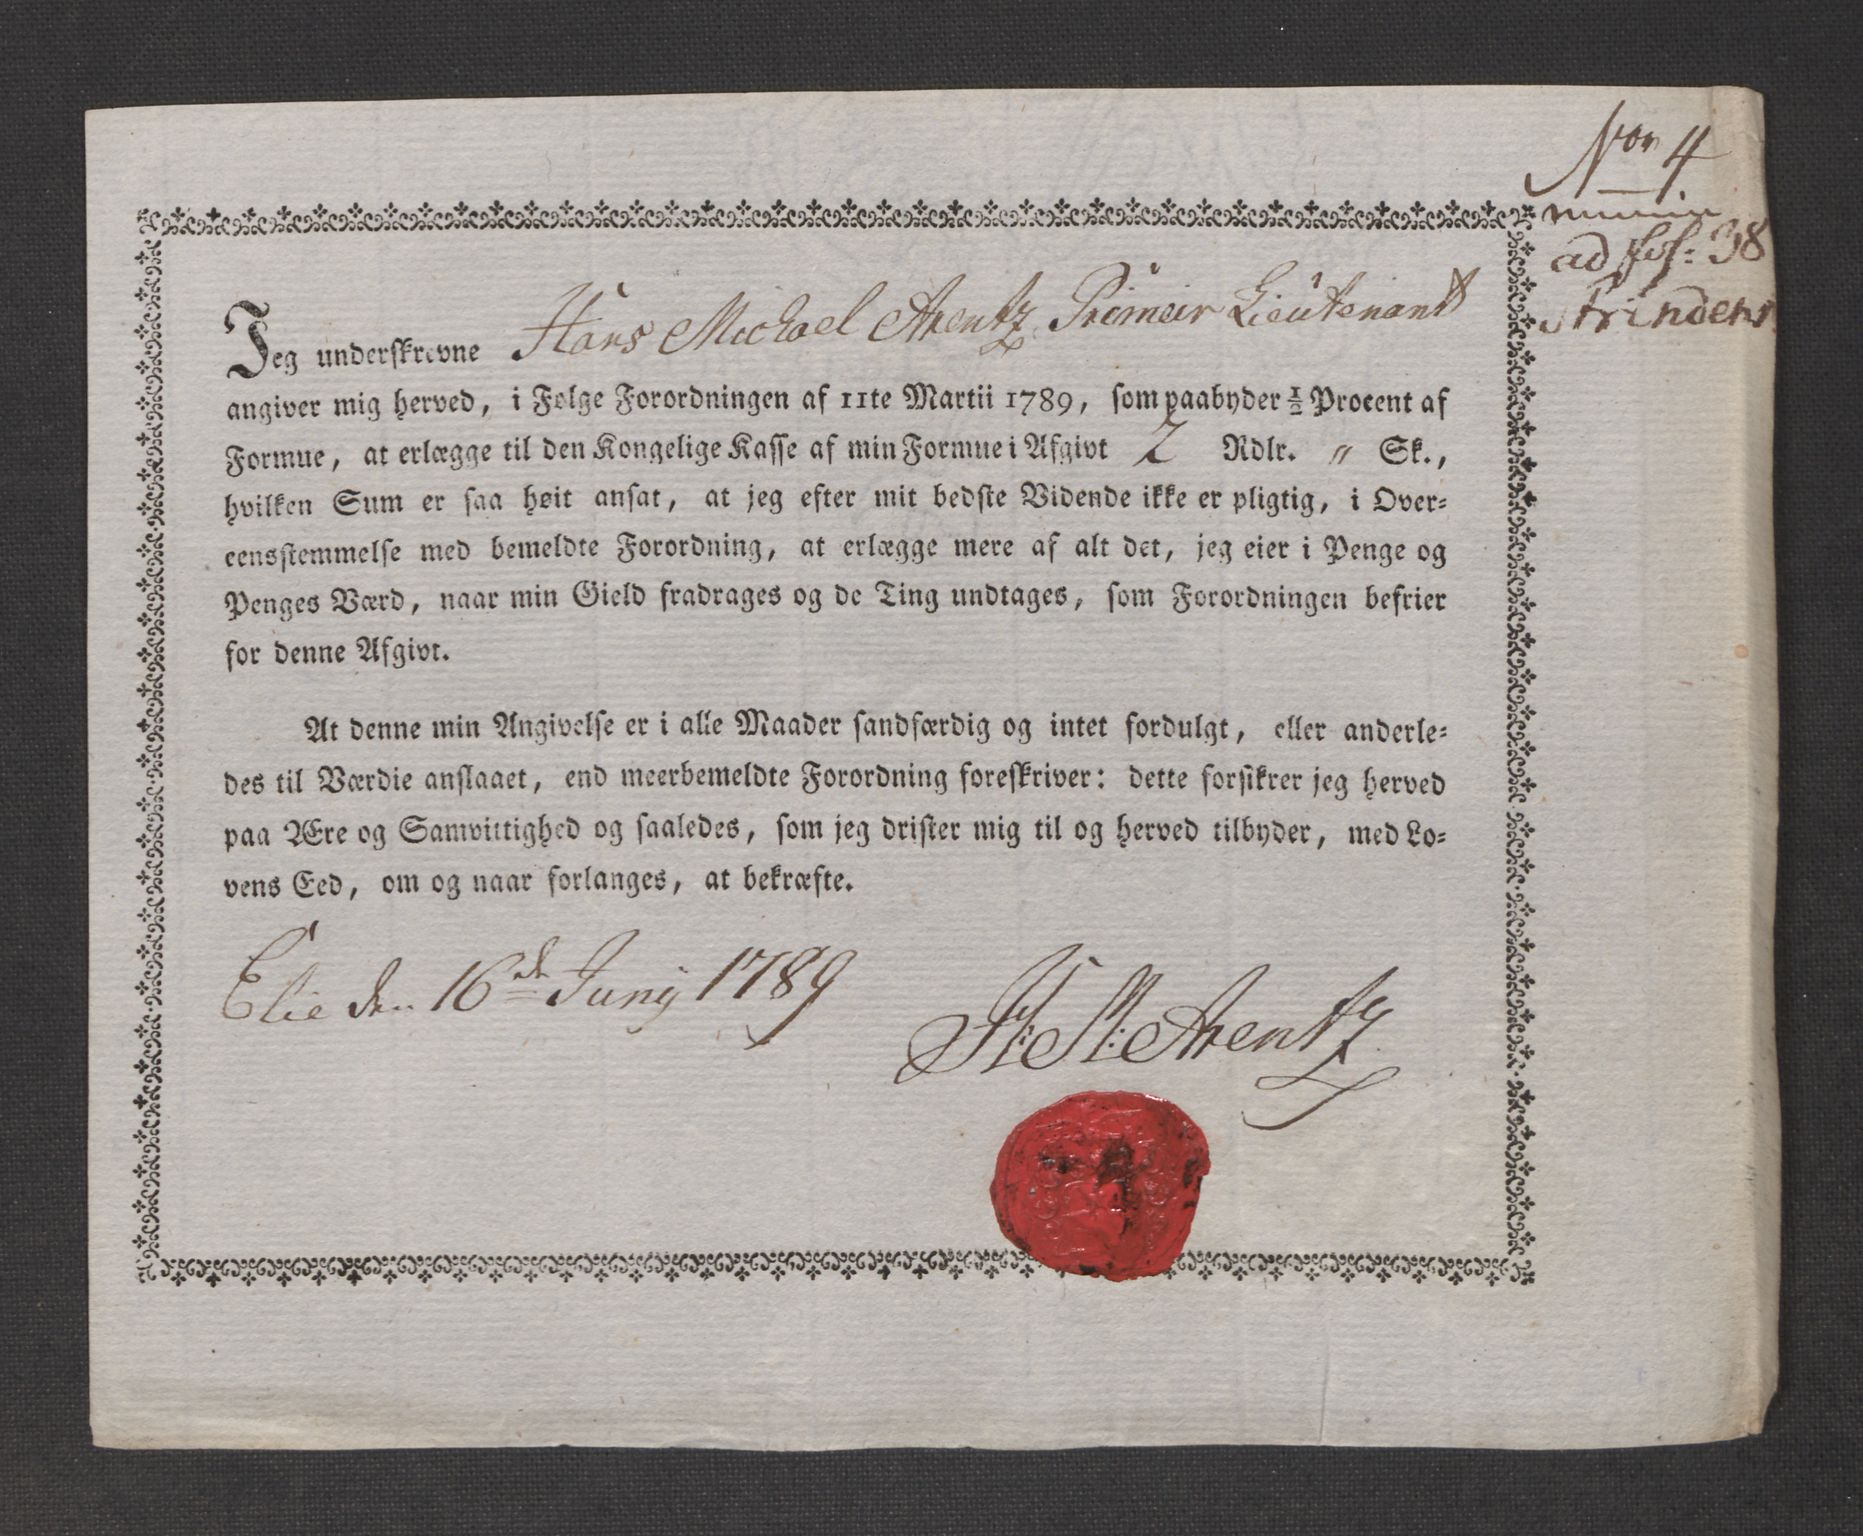 Nor 4
ad fol: 38
Strindens
Jeg underskrevne Hans Michael Arentz Prömeir Lieutenant
angiver mig herved, i Følge Forordningen af 11te Martii 1789, som paabyder ½ Procent af
Formue, at erlægge til den Kongelige Kasse af min Formue i Afgivt 2 Rdlr. " Sk.,
hvilken Sum er saa høit ansat, at jeg efter mit bedste Vidende ikke er pligtig, i Over-
eensstemmelse med bemeldte Forordning, at erlægge mere af alt det, jeg eier i Penge og
Penges Værd, naar min Gield fradrages og de Ting undtages, som Forordningen befrier
for denne Afgivt.
At denne min Angivelse er i alle Maader sandfærdig og intet fordulgt, eller anderle-
des til Værdie anslaaet, end meerbemeldte Forordning foreskriver: dette forsikrer jeg herved
paa Ære og Samvittighed og saaledes, som jeg drister mig til og herved tilbyder, med Lo-
vens Eed, om og naar forlanges, at bekræfte.
Elie den 16de Junij 1789
H: M: Arentz